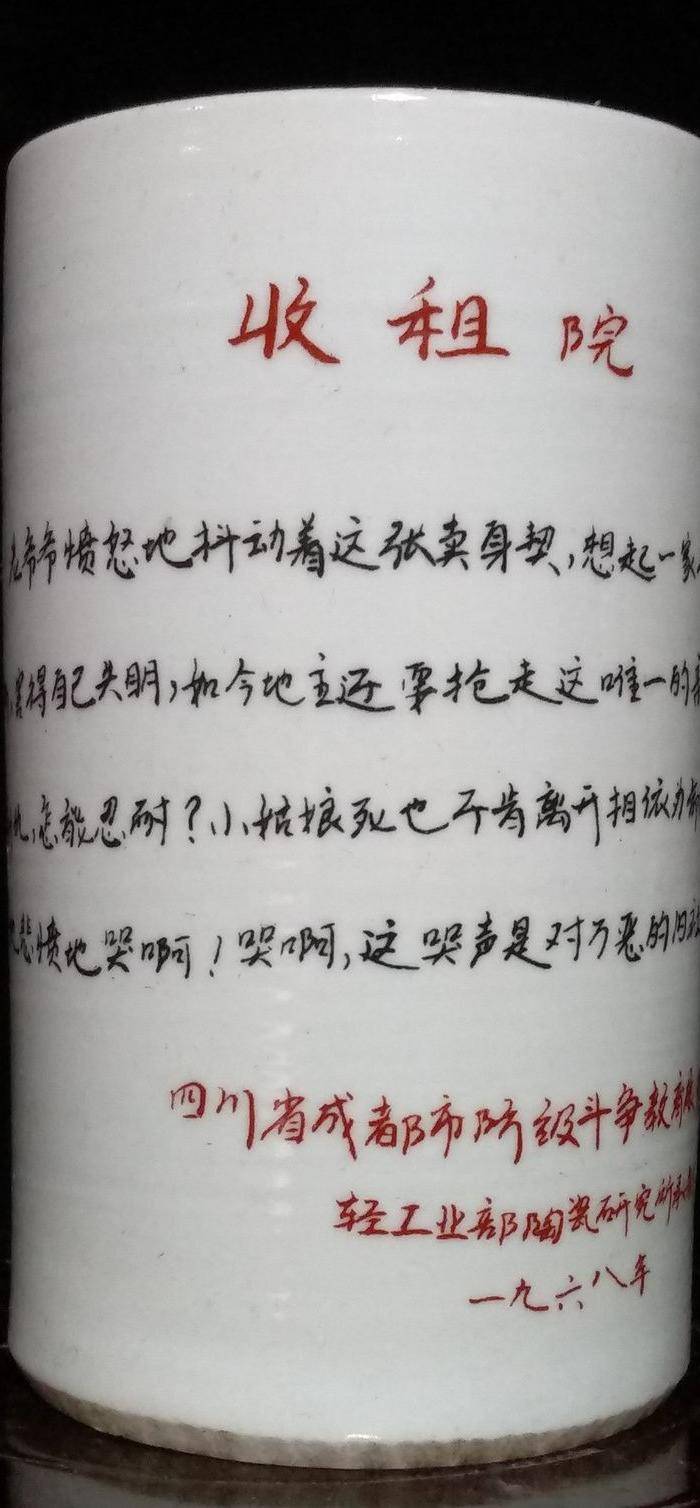 收租院
愤怒地抖动着这张卖身契,想起一家
害得自己失明,如今地主还要抢走这唯一的
怎能忍耐?小姑娘死也不肯离开相依为
悲愤地哭啊!哭啊,这哭声是对万恶的旧
四川省成都市阶级斗争教育展
轻工业部陶瓷研究所承
一九六八年